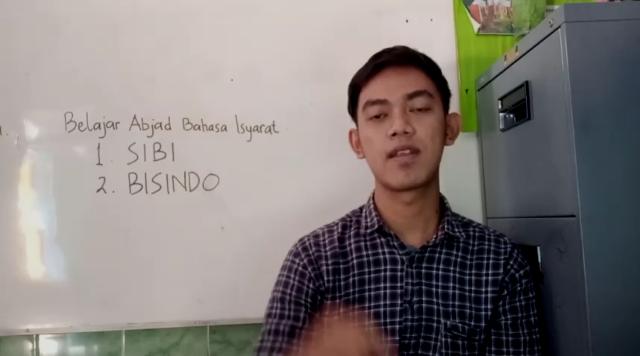 Belajar Abjad Bahasa Isyarat
1. SIBI
2. BISINDO